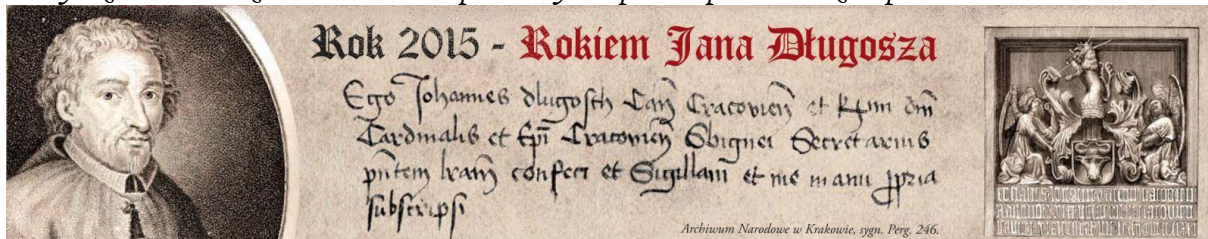 Rok 2015 - Rokiem Jana Długosza
Ego Johannes dlugosch Can Cracovien et Rmi dni
Cardinalis et Epi Cracovien Sbignei Secretarius
pntem lram confeci et Sigillaui et me manu ppria
subscripsi
Archiwum Narodowe w Krakowie, sygn. Perg. 246.